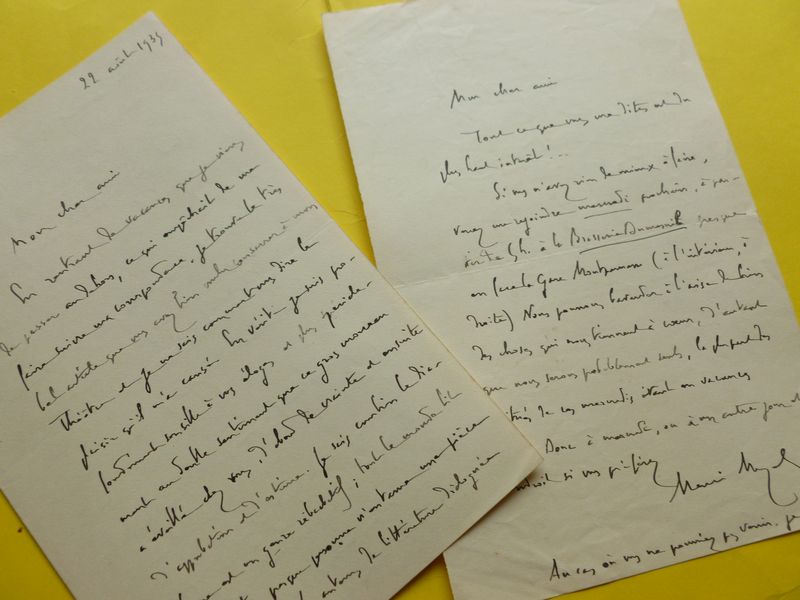 22 août 1939
Mon cher ami
En rentrant de vacances que je viens
de passer au dehors, ce qui empêchait de me
faire suivre ma correspondance, je trouve le très
bel article que vous avez bien voulu consacrer à mon
Théâtre et je ne sais comment vous dire le
plaisir qu'il m'a causé. En vérité je suis pro-
fondément sensible à vos éloges et plus précisé-
ment au double sentiment que ce gros morceau
a éveillé chez vous, d'abord de crainte et ensuite
d'approbation et d'estime. Je sais combien le dia-
est un genre rébarbatif ; tout le monde lit
presque personne n'entame une pièce
la littérature dialoguée
Mon cher ami
Tout ce que vous me dites est du
plus haut intérêt !...
Si vous n'avez rien de mieux à faire,
venez me rejoindre mercredi prochain, à par-
tir de 5h. à la Brasserie Dumesnil presque
en face la Gare Montparnasse (à l'intérieur, à
droite) Nous pourrons bavarder à l'aise de toutes
les choses qui nous tiennent à cœur, d'autant
que nous serons probablement seuls, la plupart des
de ces mercredis étant en vacances
Donc à mercredi, ou à un autre jour
si vous préférez
Au cas où vous ne pourriez pas venir, je